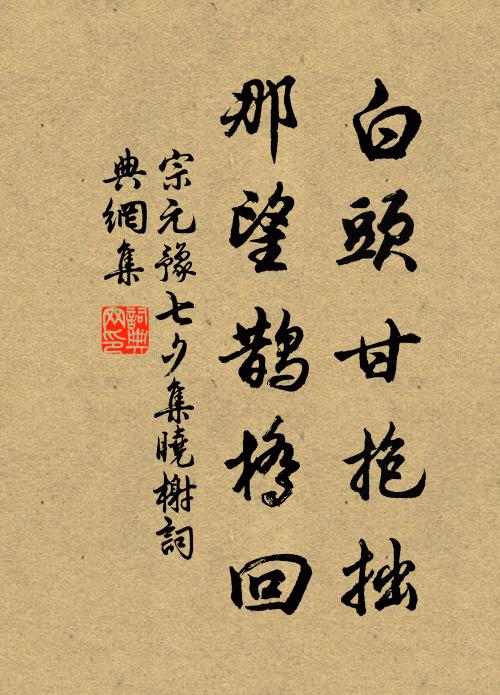 白頭甘抱拙
那望鵲橋回
宗元豫七夕集曉榭詞
典網集
詞典網印